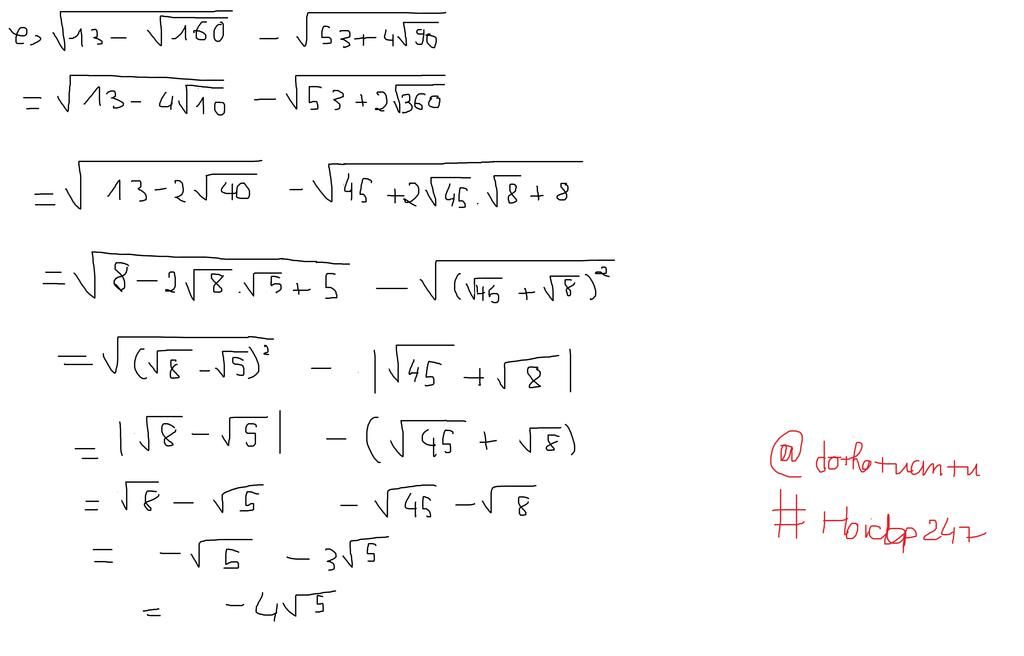 e, √(13 - √160) - √(53 + 4√90)
= √(13 - 4√10) - √(53 + 2√360)
= √(13 - 2√40) - √(45 + 2√45.√8 + 8)
= √(8 - 2√8.√5 + 5) - √((√45 + √8)²)
= √((√8 - √5)²) - |√45 + √8|
= |√8 - √5| - (√45 + √8)
= √8 - √5 - √45 - √8
= -√5 - 3√5
= -4√5
@dothotuantu
#Hoidap247